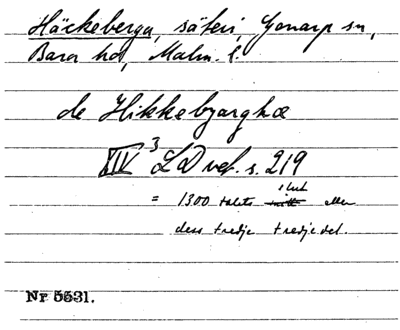 Häckeberga, säteri, Genarp sn,
Bara hd, Malm. l.
de Hikkebyarghæ
XIV 3 LD vef. s. 219
= 1300 talets slut eller
dess tredje tredjedel.
Nr 5531.